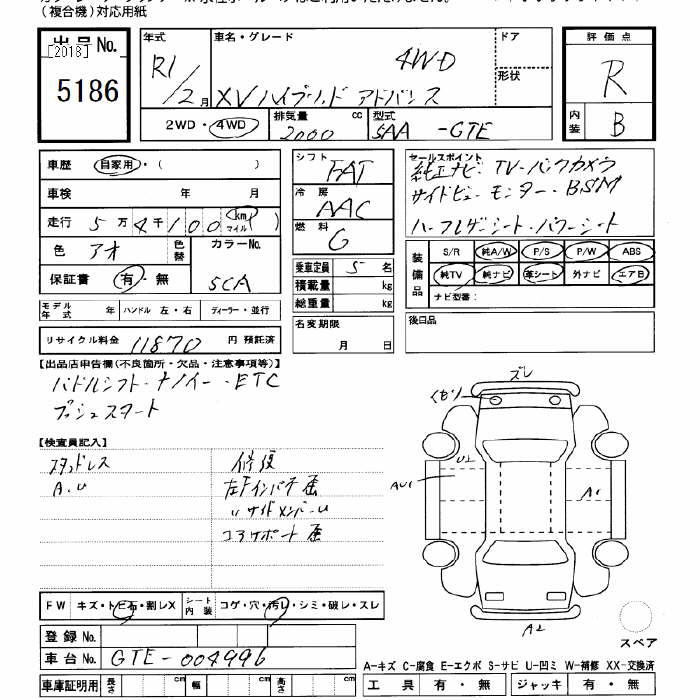 (複合機)対応用紙
出品No.
[2018]
5186
年式
R1/2月
車名・グレード
4WD
XVハイブリッド アドバンス
ドア
形状
2WD・4WD
排気量 cc
2000
型式
5AA -GTE
評価点
R
内装
B
車歴 自家用・( )
車検 年 月
走行 5万4千100 (km マイル)
色 アオ 色替
カラーNo.
5CA
保証書 有・無
シフト
FAT
冷房
AAC
燃料
G
乗車定員 5 名
積載量 kg
総重量 kg
セールスポイント
純正ナビ・TV・バックカメラ
サイドビューモニター・BSM
ハーフレザーシート・パワーシート
装備品
S/R 純A/W P/S P/W ABS
純TV 純ナビ 革シート 外ナビ エアB
ナビ型番:
モデル年式 年 ハンドル 左・右 ディーラー・並行
名変期限
月 日
後日品
リサイクル料金 11870 円 預託済
【出品店申告欄(不良箇所・欠品・注意事項等)】
パドルシフト・ナノイー・ETC
プッシュスタート
【検査員記入】
スタッドレス
A.U
修復
左Fインパネ歪
〃サイドメンバーU
コアサポート歪
ズレ
U2
AU1
A1
A2
スペア
FW キズ・トビ石・割レX
シート内装 コゲ・穴・汚レ・シミ・破レ・スレ
登録No.
車台No. GTE-004996
A-キズ C-腐食 E-エクボ S-サビ U-凹ミ W-補修 XX-交換済
車庫証明用 長さ cm 幅 cm 高さ cm
工具 有・無 ジャッキ 有・無